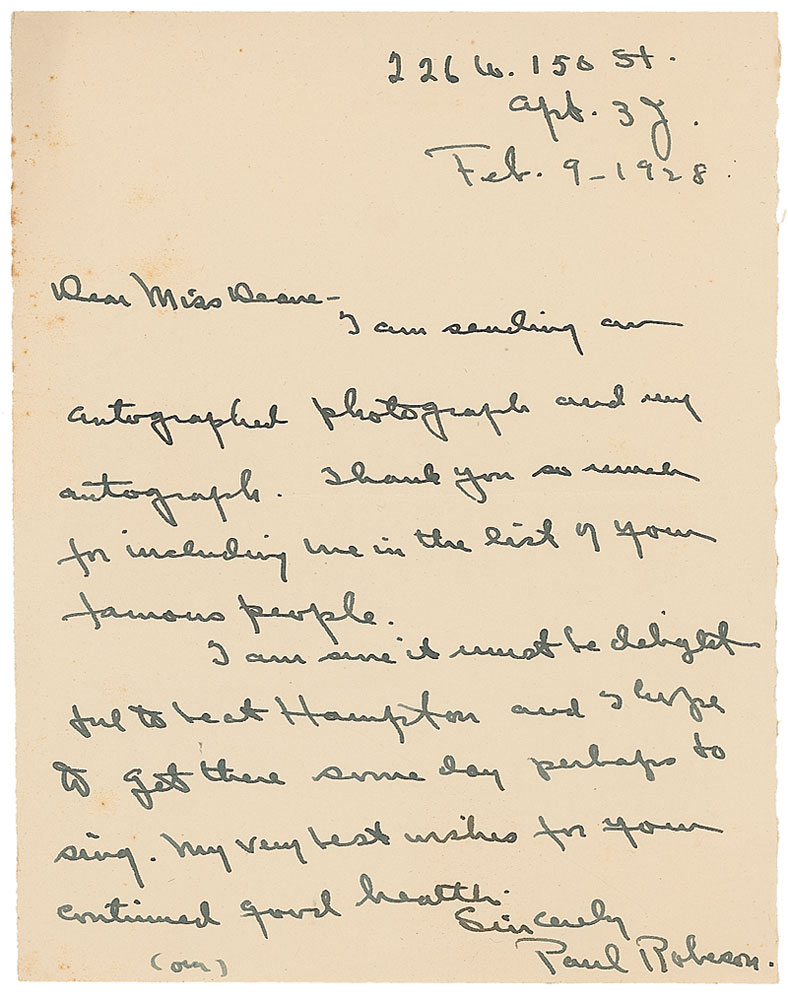 226 W. 150 St.
Apt. 3J.
Feb. 9-1928.
Dear Miss Deane-
I am sending an
autographed photograph and my
autograph. Thank you so much
for including me in the list of your
famous people.
I am sure it must be delight
ful to be at Hampton and I hope
to get there some day perhaps to
sing. My very best wishes for your
continued good health.
Sincerely
Paul Robeson.
(over)